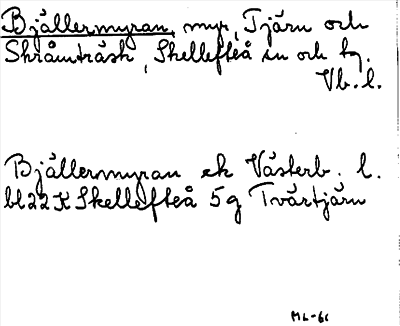 Bjällermyran, myr, Tjärn och
Skråmträsk, Skellefteå sn och tg.
Vb. l.
Bjällermyran ek Västerb. l.
bl 22 K Skellefteå 5 g Tvärtjärn
ML-61